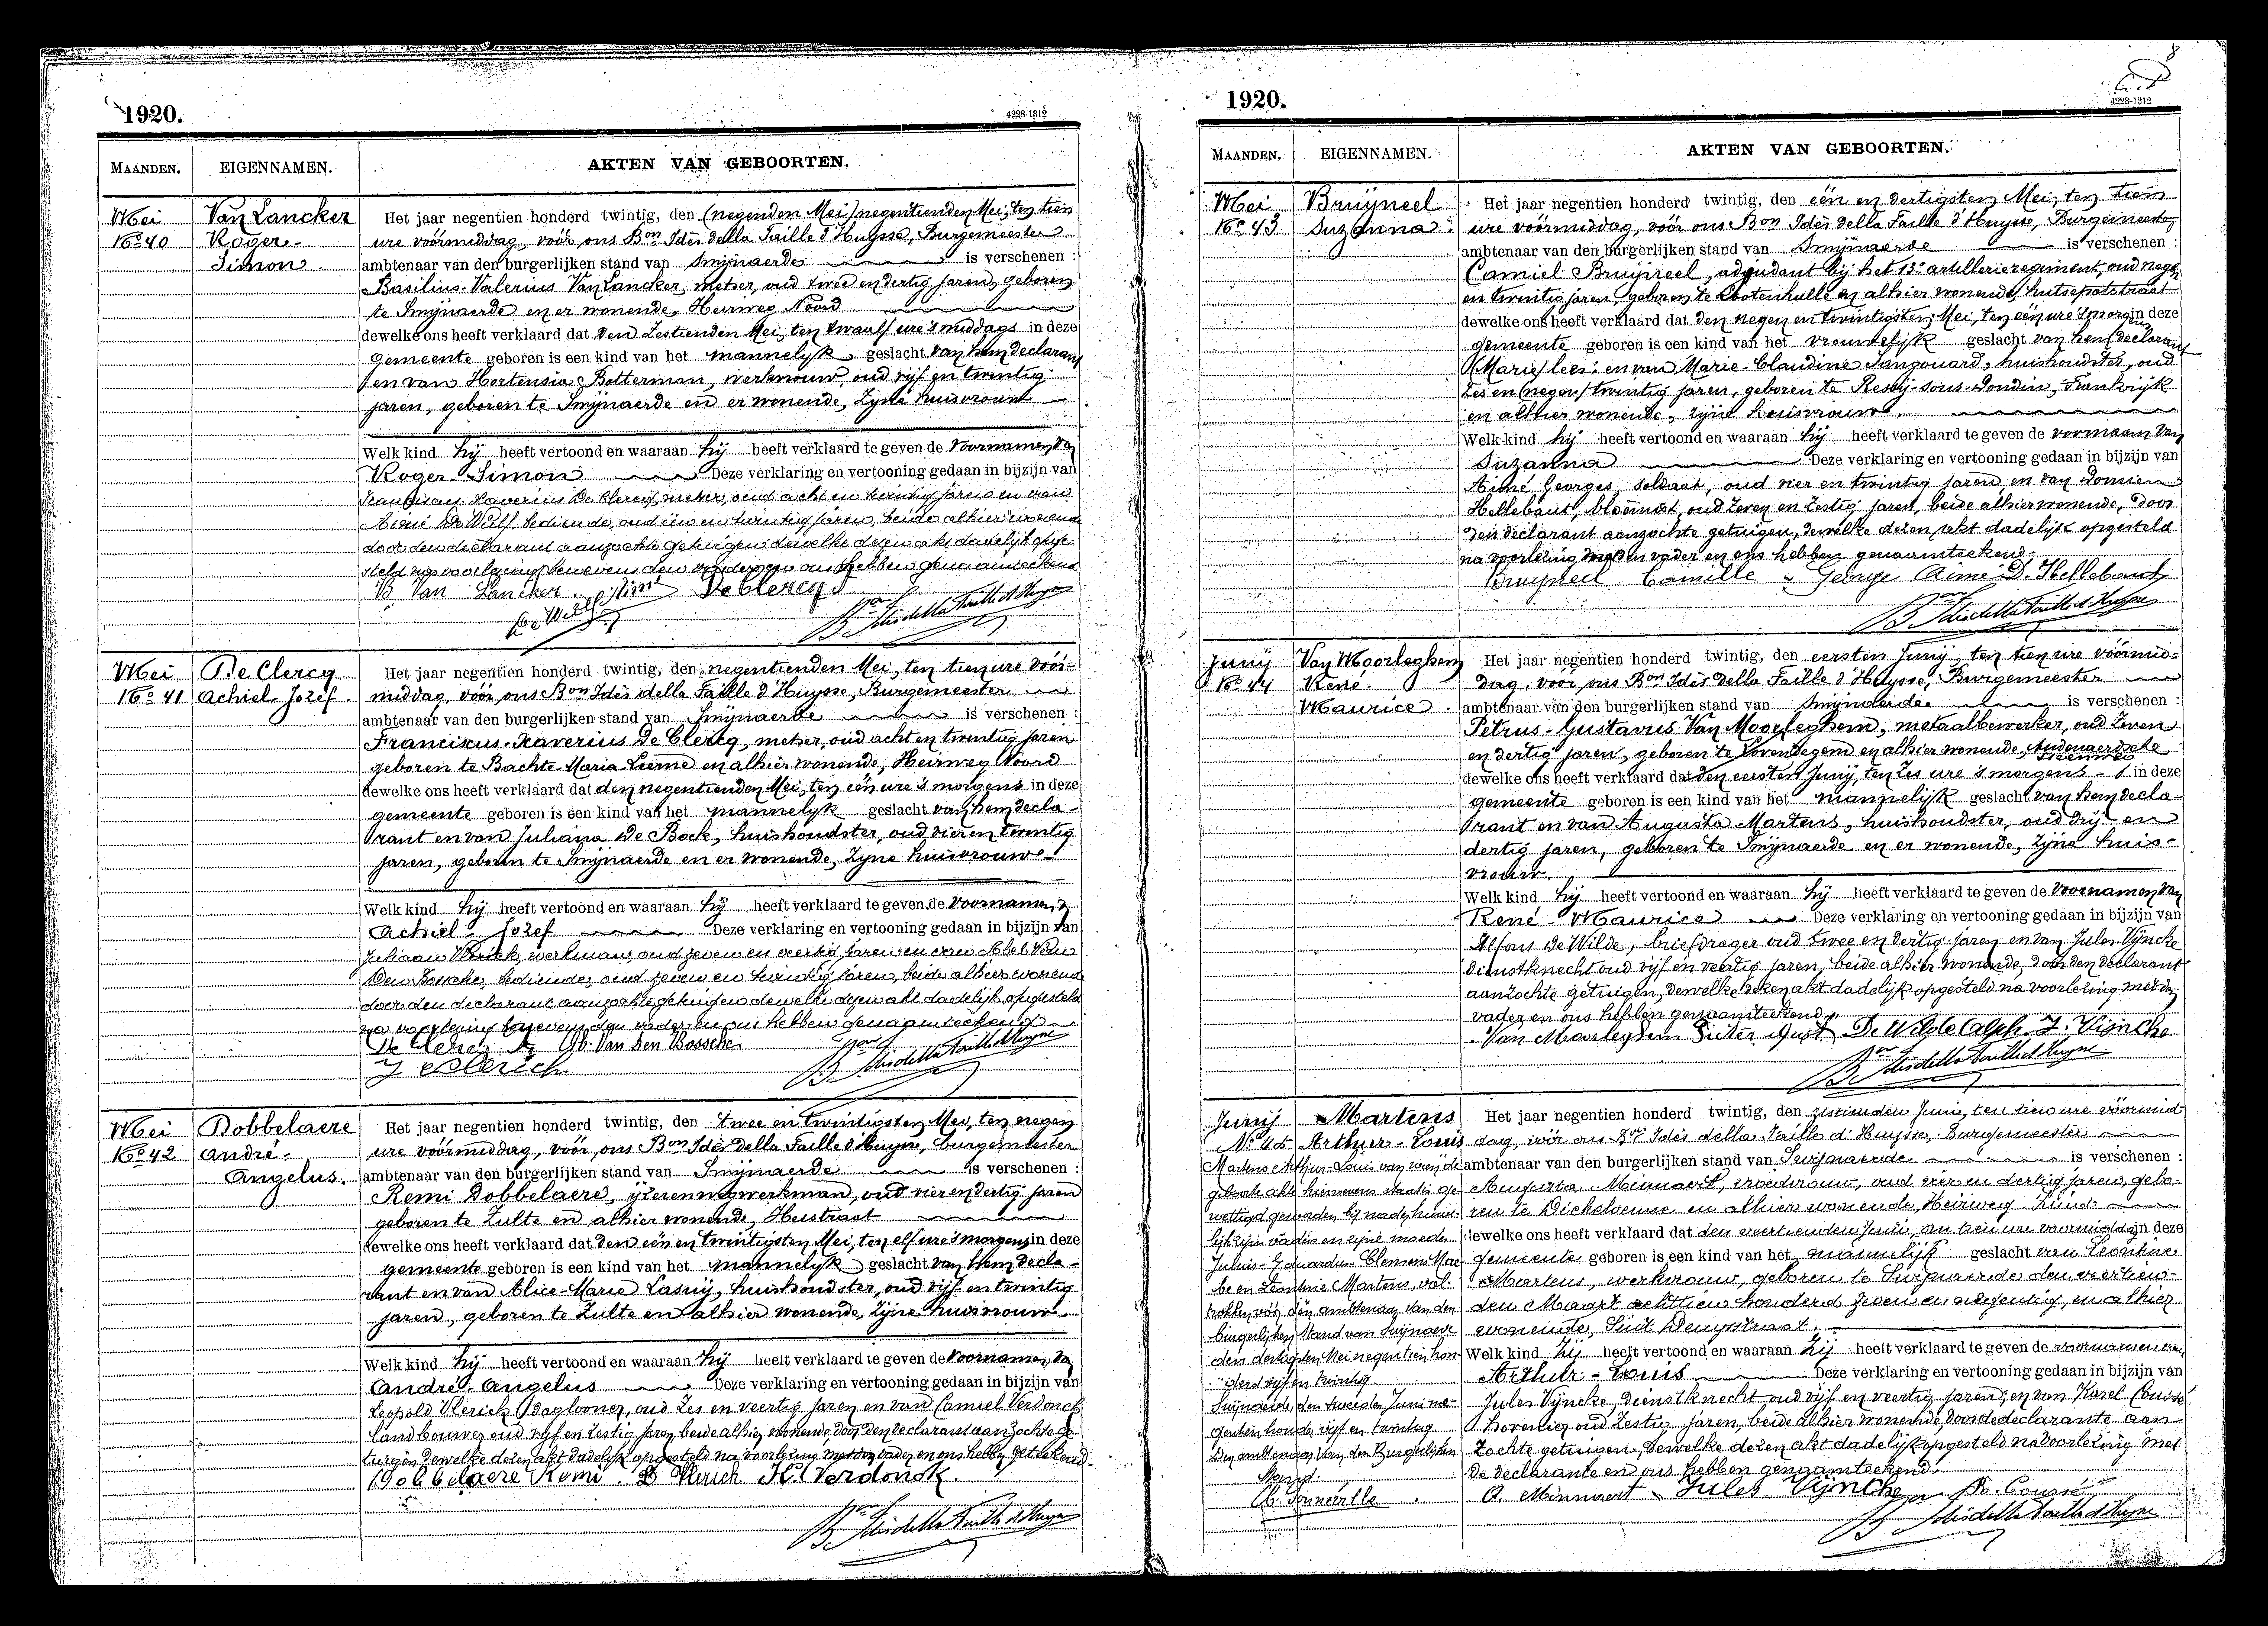 1920.
4228-1312
MAANDEN.
EIGENNAMEN.
AKTEN VAN GEBOORTEN.
Mei
No 40
Van Lancker
Roger-
Simon.
Het jaar negentien honderd twintig, den (negenden Mei) negentienden Mei, ten tien
ure voormiddag, vóór ons Bon Idès della Faille d'Huysse, Burgemeester
ambtenaar van den burgerlijken stand van Swijnaerde is verschenen :
Basilius-Valerius Van Lancker, metser, oud twee en dertig jaren, geboren
te Swijnaerde en er wonende, Heirweg Noord
dewelke ons heeft verklaard dat den zestienden Mei, ten twaalf ure 's middags in deze
gemeente geboren is een kind van het mannelyk geslacht van hem declarant
en van Hortensia Botterman, werkvrouw, oud vijf en twintig
jaren, geboren te Swijnaerde en er wonende, zijne huisvrouw
Welk kind hij heeft vertoond en waaraan hij heeft verklaard te geven de voornamen van
Roger-Simon Deze verklaring en vertooning gedaan in bijzijn van
Franciscus Xaverius De Clercq, metser, oud acht en twintig jaren en van
Aimé De Wulf, bediende, oud één en twintig jaren, beide alhier wonende
door den declarant aanzochte getuigen dewelke dezen akt dadelijk opge-
steld na voorlezing benevens den vader en ons hebben genaamteekend
B. Van Lancker. De Clercq
Mei
No 41
De Clercq
Achiel-Jozef.
Het jaar negentien honderd twintig, den negentienden Mei, ten tien ure voor-
middag, vóór ons Bon Idès della Faille d'Huysse, Burgemeester
ambtenaar van den burgerlijken stand van Swijnaerde is verschenen :
Franciscus-Xaverius De Clercq, metser, oud acht en twintig jaren
geboren te Bachte-Maria-Leerne en alhier wonende, Heirweg Noord
dewelke ons heeft verklaard dat den negentienden Mei, ten één ure 's morgens in deze
gemeente geboren is een kind van het mannelyk geslacht van hem decla-
rant en van Juliana De Bock, huishoudster, oud vier en twintig
jaren, geboren te Swijnaerde en er wonende, zyne huisvrouw
Welk kind hij heeft vertoond en waaraan hij heeft verklaard te geven de voornamen
Achiel-Jozef Deze verklaring en vertooning gedaan in bijzijn van
Juliaan Vlerick, werkman, oud zeven en veertig jaren en van Abel Van
Den Bossche, bediende, oud zeven en twintig jaren, beide alhier wonende
door den declarant aanzochte getuigen dewelke dezen akt dadelijk opgesteld
na voorlezing benevens den vader en ons hebben genaamteekend
De Clercq Ab. Van Den Bossche
J Vlerick
Mei
No 42
Dobbelaere
André-
Angelus.
Het jaar negentien honderd twintig, den twee en twintigsten Mei, ten negen
ure vóórmiddag, vóór ons Bon Idès della Faille d'Huysse, burgemeester
ambtenaar van den burgerlijken stand van Swijnaerde is verschenen :
Remi Dobbelaere, ijzerenwegwerkman, oud vier en dertig jaren
geboren te Zulte en alhier wonende, Heistraat
dewelke ons heeft verklaard dat den één en twintigsten Mei, ten elf ure 's morgens in deze
gemeente geboren is een kind van het mannelyk geslacht van hem decla-
rant en van Alice-Marie Lasuij, huishoudster, oud vijf en twintig
jaren, geboren te Zulte en alhier wonende, zijne huisvrouw
Welk kind hij heeft vertoond en waaraan hij heeft verklaard te geven de voornamen van
André-Angelus Deze verklaring en vertooning gedaan in bijzijn van
Leopold Vlerick, daglooner, oud zes en veertig jaren en van Camiel Verdonck
landbouwer oud vijf en zestig jaren beide alhier wonende, door den declarant aanzochte ge-
tuigen dewelke dezen akt dadelijk opgesteld na voorlezing met den vader en ons hebben geteekend.
Dobbelaere Remi. L Vlerick K. Verdonck.
1920.
4228-1312
MAANDEN.
EIGENNAMEN.
AKTEN VAN GEBOORTEN.
Mei
No 43
Bruyneel
Suzanna.
Het jaar negentien honderd twintig, den één en dertigsten Mei, ten tien
ure vóórmiddag, vóór ons Bon Idès della Faille d'Huysse, Burgemeester
ambtenaar van den burgerlijken stand van Swijnaerde is verschenen :
Camiel Bruyneel, adjudant bij het 13e artillerieregiment, oud negen
en twintig jaren, geboren te Lootenhulle en alhier wonende, hutsepotstraat
dewelke ons heeft verklaard dat den negen en twintigsten Mei, ten één ure 's morgens in deze
gemeente geboren is een kind van het vrouwelijk geslacht van hem declarant
(Marie) lees: en van Marie-Claudine Sangouard, huishoudster, oud
zes en (negen) twintig jaren, geboren te Ressy-sous-Dondin, Frankrijk
en alhier wonende, zijne huisvrouw.
Welk kind hij heeft vertoond en waaraan hij heeft verklaard te geven de voornaam van
Suzanna Deze verklaring en vertooning gedaan in bijzijn van
Aimé Georges, soldaat, oud vier en twintig jaren en van Domien
Hellebaut, bloemist, oud zeven en zestig jaren, beide alhier wonende, door
den declarant aanzochte getuigen, dewelke dezen akt dadelijk opgesteld
na voorlezing met den vader en ons hebben genaamteekend.
Bruyneel Camille George Aimé D. Hellebaut
Junij
No 44
Van Moorleghem
René-
Maurice.
Het jaar negentien honderd twintig, den eersten Junij, ten tien ure vóórmid-
dag, vóór ons Bon Idès della Faille d'Huysse, Burgemeester
ambtenaar van den burgerlijken stand van Swijnaerde is verschenen :
Petrus-Gustavus Van Moorleghem, metaalbewerker, oud zeven
en dertig jaren, geboren te Lovendegem en alhier wonende, Audenaerdsche
Steenweg
dewelke ons heeft verklaard dat den eersten Junij, ten zes ure 's morgens in deze
gemeente geboren is een kind van het mannelijk geslacht van hem decla-
rant en van Augusta Martens, huishoudster, oud drij en
dertig jaren, geboren te Swijnaerde en er wonende, zijne huis-
vrouw.
Welk kind hij heeft vertoond en waaraan hij heeft verklaard te geven de voornamen van
René-Maurice Deze verklaring en vertooning gedaan in bijzijn van
Alfons De Wilde, briefdrager oud twee en dertig jaren en van Jules Vijncke
dienstknecht oud vijf en veertig jaren, beide alhier wonende, door den declarant
aanzochte getuigen, dewelke dezen akt dadelijk opgesteld na voorlezing met den
vader en ons hebben genaamteekend.
Van Moorleghem Pieter Gust. De Wilde Alph J. Vijncke
Junij
No 45
Martens
Arthur-Louis
Martens Arthur-Louis van wien de
geboorte akte hiernevens staat is ge-
wettigd geworden bij nadig huwe-
lijk zijn vader en zijne moeder
Julius-Eduardus-Clemens
en Leontine Martens, vol-
trokken vóór den ambtenaar van den
burgerlijken stand van Swijnaerde
den dertigsten Mei negentien hon-
derd vijf en twintig
Swijnaerde, den tweeden Juni ne-
gentien honderd vijf en twintig
Den ambtenaar van den Burgerlijken
Stand.
Het jaar negentien honderd twintig, den zestienden Juni, ten tien ure vóórmid-
dag, vóór ons Bon Idès della Faille d'Huysse, Burgemeester
ambtenaar van den burgerlijken stand van Swijnaerde is verschenen :
Augusta Minnaert, vroedvrouw, oud vier en dertig jaren, gebo-
ren te Dickelvenne en alhier wonende, Heirweg Zuid
dewelke ons heeft verklaard dat den veertienden Juni, om tien ure voormiddag in deze
gemeente geboren is een kind van het mannelijk geslacht van Leontine
Martens, werkvrouw, geboren te Swijnaerde den veertien-
den Maart achttien honderd zeven en negentig, en alhier
wonende, Sint Denysstraat.
Welk kind zij heeft vertoond en waaraan zij heeft verklaard te geven de voornamen van
Arthur-Louis Deze verklaring en vertooning gedaan in bijzijn van
Jules Vijncke, dienstknecht, oud vijf en veertig jaren, en van Karel Coussé
hovenier, oud zestig jaren, beide alhier wonende, door de declarante aan-
zochte getuigen, dewelke dezen akt dadelijk opgesteld na voorlezing met
de declarante en ons hebben genaamteekend.
A. Minnaert Jules Vijncke K. Coussé